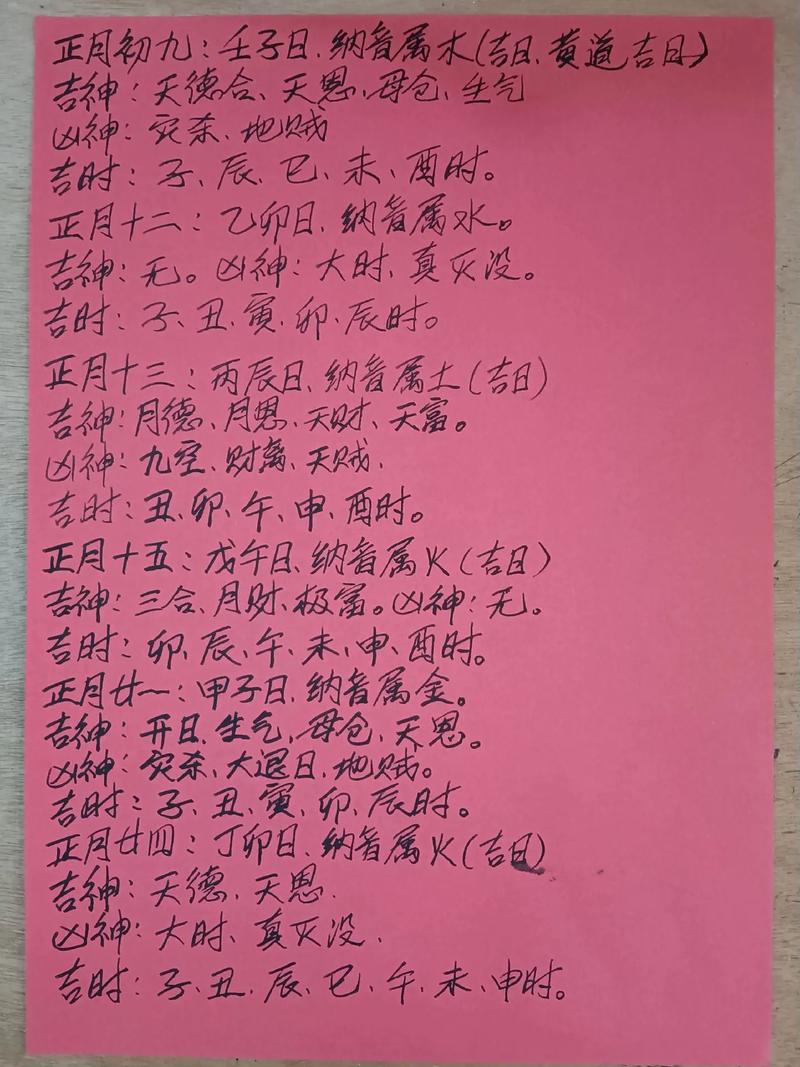 正月初九：壬子日、纳音属木(吉日、黄道吉日)
吉神：天德合、天恩、母仓、生气
凶神：灾杀、地贼
吉时：子、辰、巳、未、酉时。
正月十二：乙卯日、纳音属水。
吉神：无。凶神：大时、真灭没。
吉时：子、丑、寅、卯、辰时。
正月十三：丙辰日、纳音属土(吉日)
吉神：月德、月恩、天财、天富。
凶神：九空、财离、天贼、
吉时：丑、卯、午、申、酉时。
正月十五：戊午日、纳音属火(吉日)
吉神：三合、月财、极富。凶神：无。
吉时：卯、辰、午、未、申、酉时。
正月廿一：甲子日、纳音属金。
吉神：开日、生气、母仓、天恩。
凶神：灾杀、大退日、地贼。
吉时：子、丑、寅、卯、辰时。
正月廿四：丁卯日、纳音属火(吉日)
吉神：天德、天恩、
凶神：大时、真灭没、
吉时：子、丑、辰、巳、午、未、申时。